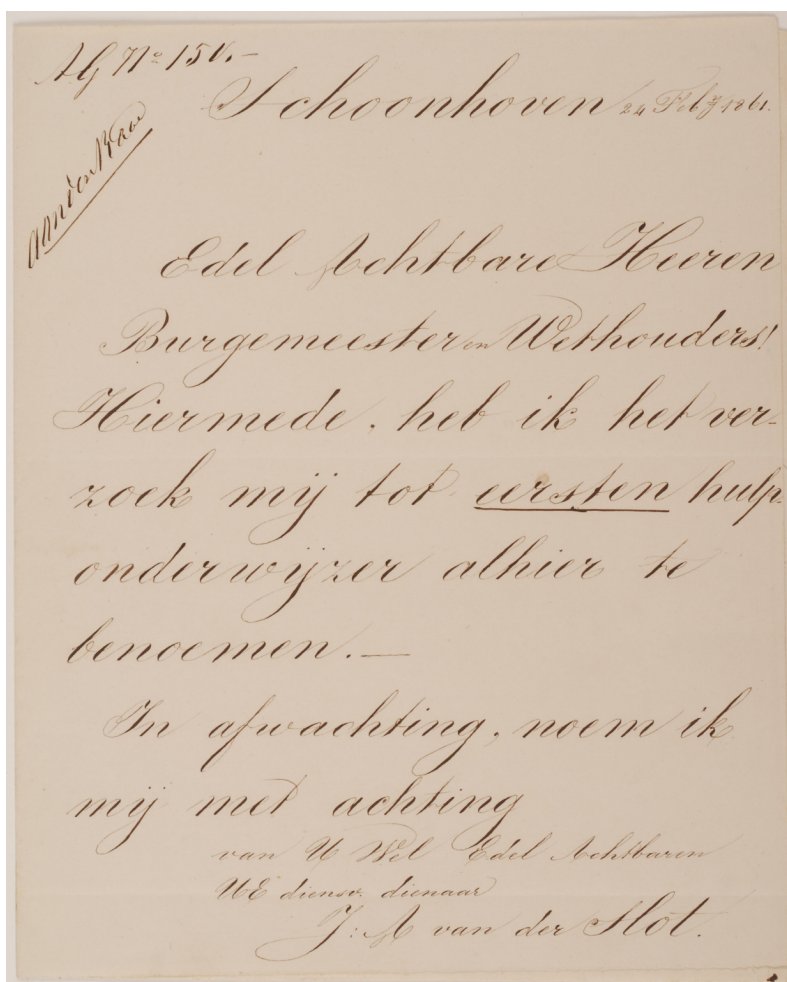 AG No 150.—
Schoonhoven 24 Feby 1861.
aan den
Edel Achtbare Heeren
Burgemeester en Wethouders!
Hiermede, heb ik het ver-
zoek mij tot eersten hulp-
onderwijzer alhier te
benoemen.—
In afwachting, noem ik
mij met achting
van U Wel Edel Achtbaren
UE dienstv. dienaar
J: A van der Slot.